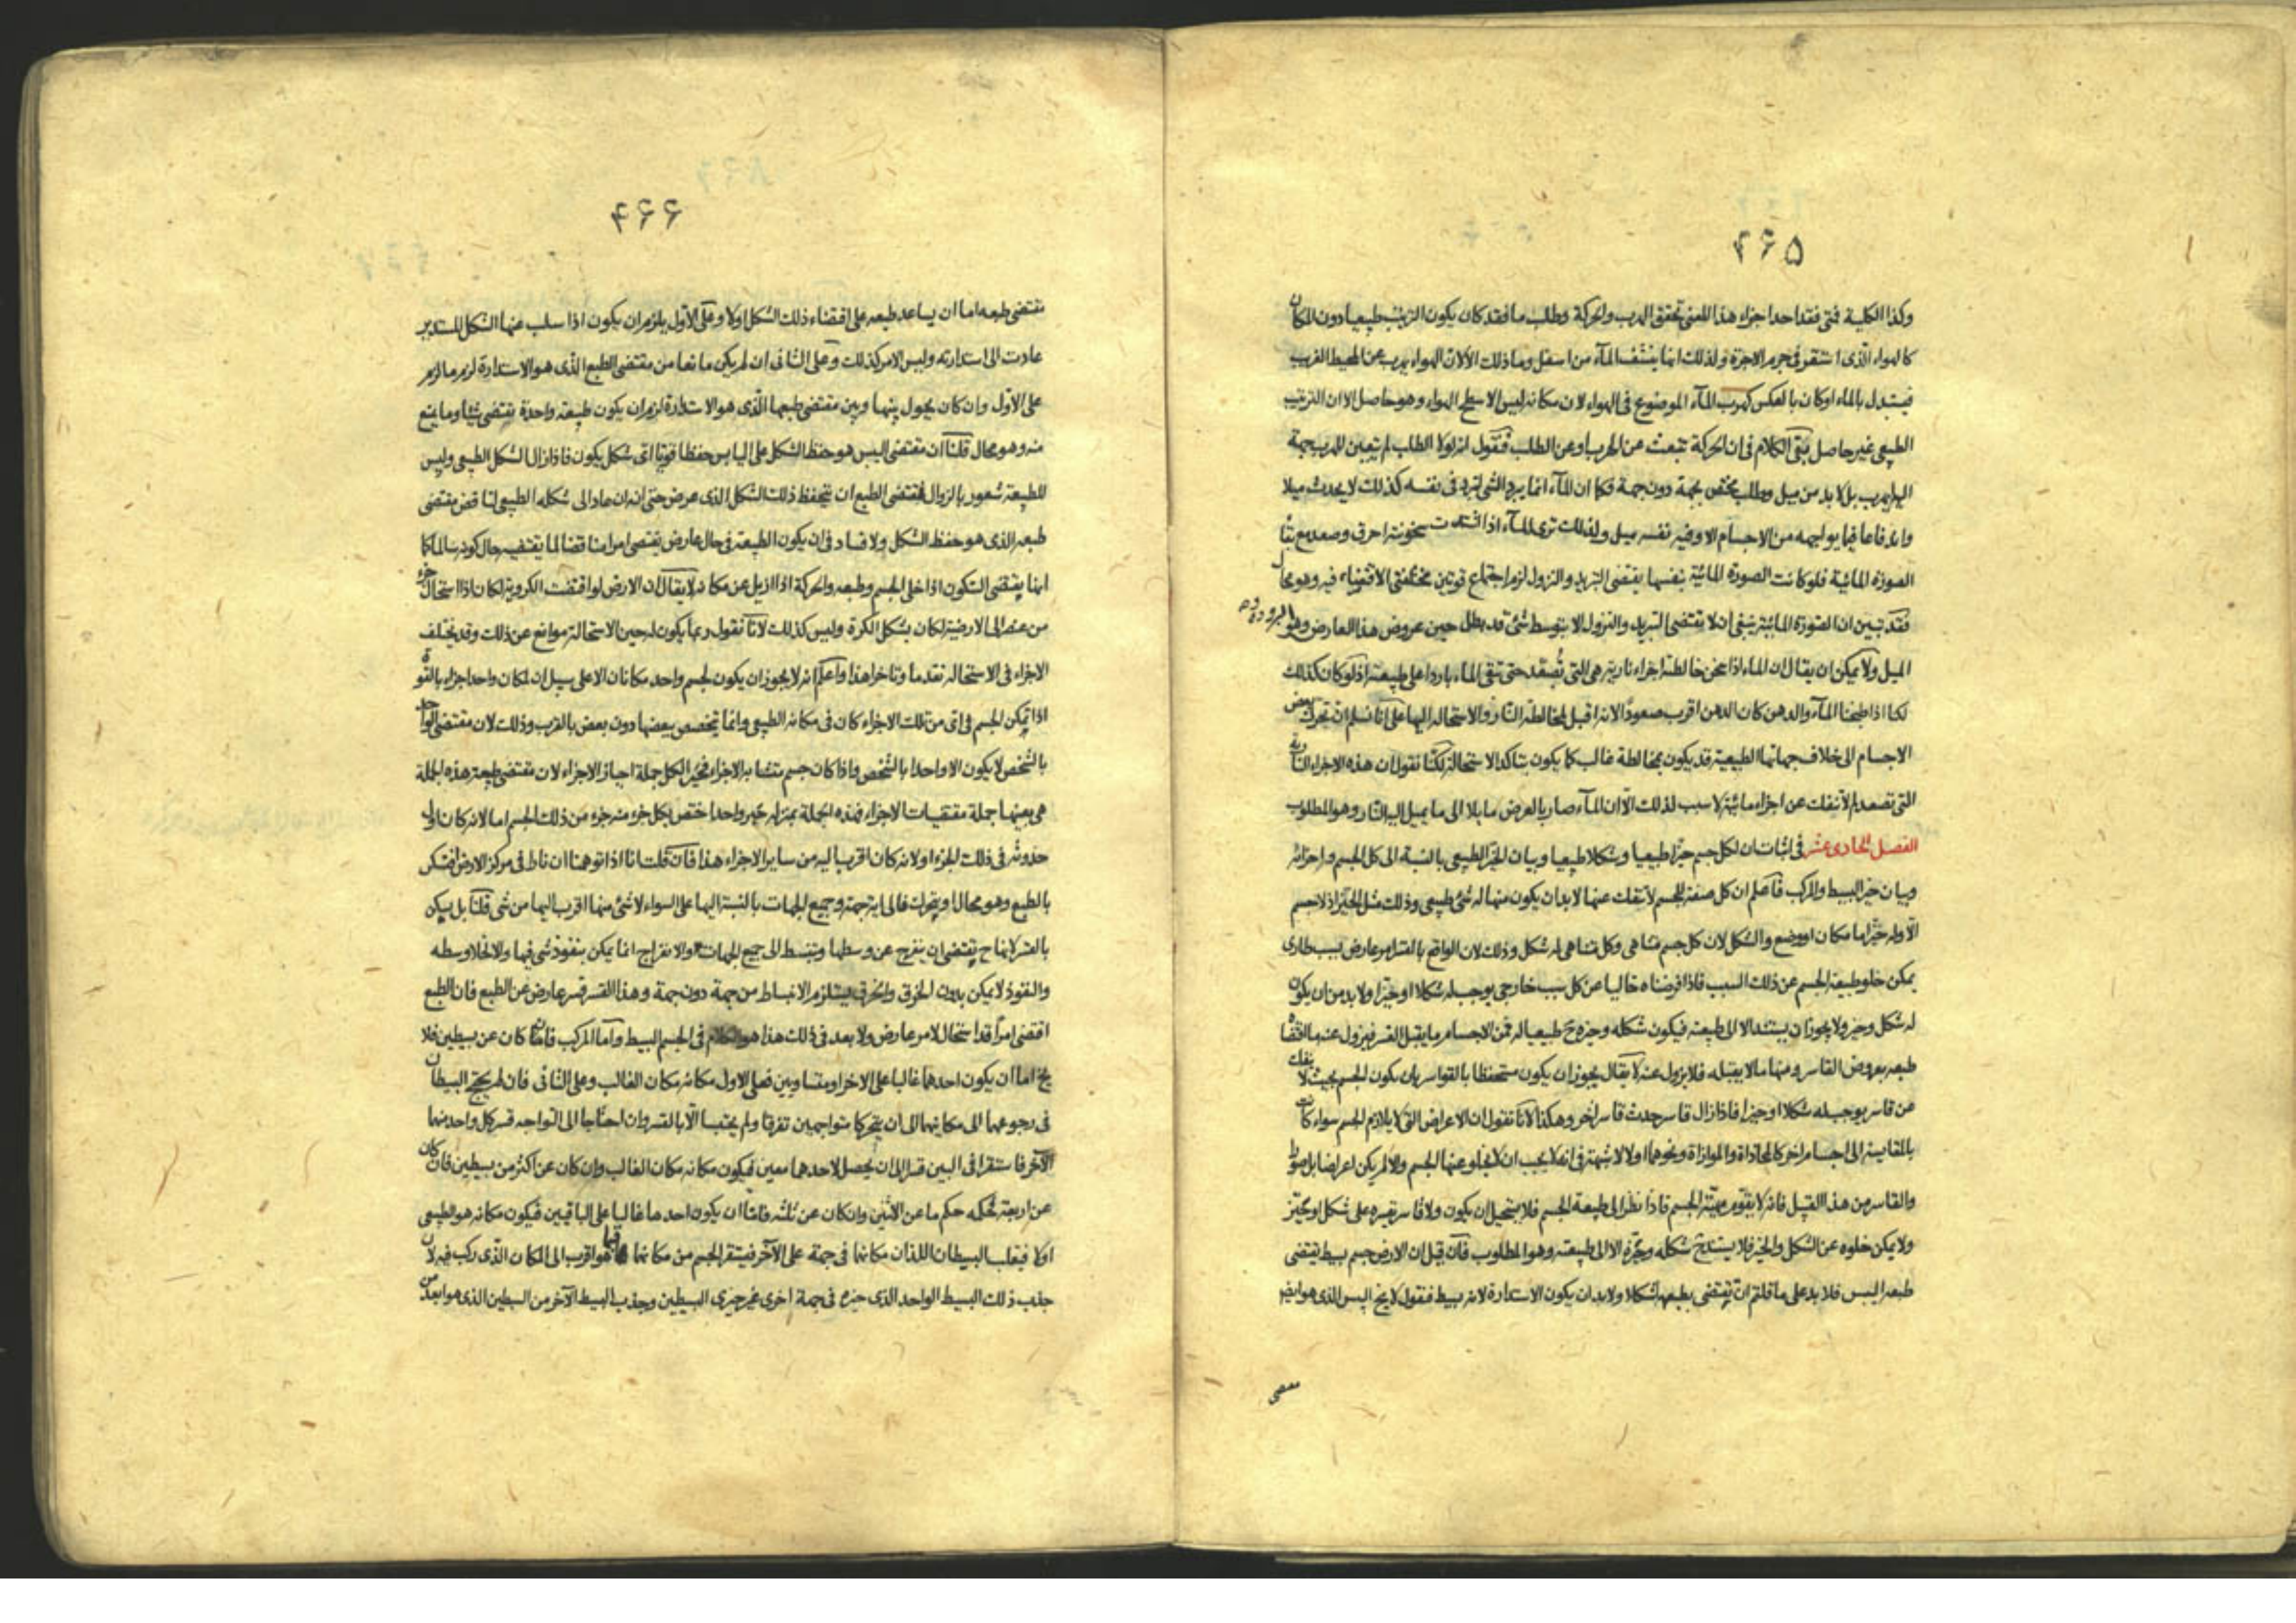 ۴۶۵
وكذا الكلية فمتى فقد احد اجزاء هذا المعنى تحقق الهرب والحركة وطلب ما فقد كان يكون الترتيب طبيعيا دون المكان
كالهواء الذى استقر فى جرم الاجرة ولذلك انما ينشف المآء من اسفل وما ذلك الا لان الهواء يهرب عن المحيط الغريب
فيستبدل بالماء او كان بالعكس كهرب المآء الموضوع فى الهواء لان مكانه ليس الا سطح الهواء وهو حاصل الا ان الترتيب
الطبيعى غير حاصل بقى الكلام فى ان الحركة تنبعث عن الهرب او عن الطلب فنقول انه لولا الطلب لم يتعين للهرب جهة
اليها يهرب بل لا بد من ميل وطلب مختص بجهة دون جهة فكما ان المآء انما يبرد الشى لبرد فى نفسه كذلك لا يحدث ميلا
واندفاعا فيما يواجهه من الاجسام الا وفيه نفسه ميل ولذلك ترى المآء اذا اشتدت سخونته احرق وصعد مع بقآ
الصورة المائية فلو كانت الصورة المائية بنفسها يقتضى التبريد والنزول لزم اجتماع قوتين مختلفتى الاقتضاء فيه وهو محال
فقد تبين ان الصورة المائية ينبغى ان لا يقتضى التبريد والنزول الا بتوسط شئ قد بطل حين عروض هذا العارض وهو البرودة و
الميل ولا يمكن ان يقال ان الماء اذا سخن خالطته اجزاء نارية هى التى تُصعّد حتى تبقى الماء باردا على طبيعته اذ لو كان كذلك
لكنا اذا طبخنا المآء والدهن كان الدهن اقرب صعودا لانه اقبل لمخالطة النار والاستحالة اليها على انا نسلم ان تحرك بعض
الاجسام الى خلاف جهاتها الطبيعية قد يكون بمخالطة غالب كما يكون بتاكد الاستحالة لكنا نقول ان هذه الاجزاء النارية
التى تصعد لم لا تنفك عن اجزاء مائية لا سبب لذلك الا ان المآء صار بالعرض مايلا الى ما يميل اليه النار وهو المطلوب
الفصل الحادى عشر فى اثبات ان لكل جسم حيزا طبيعيا وشكلا طبيعيا وبيان الحيز الطبيعى بالنسبة الى كل الجسم واجزائه
وبيان حيز البسيط والمركب فاعلم ان كل صفة للجسم لا تنفك عنها لا بد ان يكون منها له شئ طبيعى وذلك مثل الحيز اذ لا جسم
الا وله حيز اما مكان او وضع والشكل لان كل جسم متناهى وكل متناهى له شكل وذلك لان الواقع بالقسر امر عارض بسبب طارى
يمكن خلو طبيعة الجسم عن ذلك السبب فاذا فرضناه خاليا عن كل سبب خارجى يوجب له شكلا او حيزا ولا بد من ان يكون
له شكل وحيز ولا يجوز ان يستند الا الى طبيعته فيكون شكله وحيزه ح طبيعيا له فمن الاجسام ما يقبل القسر فيزول عنه ما اقتضاه
طبعه بعروض القاسر ومنها ما لا يقبله فلا يزول عنه لا يقال يجوز ان يكون مستحفظا بالقواسر بان يكون الجسم بحيث لا ينفك
عن قاسر يوجب له شكلا او حيزا فاذا زال قاسر حدث قاسر اخر وهكذا لانا نقول ان الاعراض التى لا يلازم الجسم سواء كانت
بالمقايسة الى اجسام اخر كالمحاذاة والموازاة ونحوهما اولا لا شبهة فى انه لا يجب ان لا يخلو عنها الجسم والا لم يكن اعراضا بل صورا
والقاسر من هذا القبيل فانه لا يقوم مهية الجسم فاذا نظر الى طبيعة الجسم فلا يستحيل ان يكون ولا قاسر يقسره على شكل او تحيّز
ولا يمكن خلوه عن الشكل والحيز فلا يستند ح شكله وتحيزه الا الى طبيعته وهو المطلوب فان قيل ان الارض جسم بسيط يقتضى
طبعه اليبس فلا بد على ما قلتم ان يقتضى بطبعها شكلا ولا بد ان يكون الاستدارة لانه بسيط فنقول لا يخ اليبس الذى هو ايضا
مقتضى
۴۶۶
مقتضى طبعه اما ان يساعد طبعه على اقتضاء ذلك الشكل اولا وعلى الاول يلزم ان يكون اذا سلب عنها الشكل المستدير
عادت الى استدارته وليس الامر كذلك وعلى الثانى ان لم يكن مانعا من مقتضى الطبع الذى هو الاستدارة لزم ما لزم
على الاول وان كان يحول بينها وبين مقتضى طبعها الذى هو الاستدارة لزم ان يكون طبيعة واحدة يقتضى شيئا وما يمنع
منه وهو محال قلنا ان مقتضى اليبس هو حفظ الشكل على اليابس حفظا قويا اى شكل يكون فاذا زال الشكل الطبيعى وليس
للطبيعة شعور بالزوال فمقتضى الطبع ان يتحفظ ذلك الشكل الذى عرض حتى انه ان عاد الى شكله الطبيعى لناقض مقتضى
طبعه الذى هو حفظ الشكل ولا فساد فى ان يكون الطبيعة فى حال عارض يقتضى امرا مناقضا لما يقتضيه حال كونه سالما كما
انها يقتضى السكون اذا خلى الجسم وطبعه والحركة اذا ازيل عن مكانه لا يقال ان الارض لو اقتضت الكروية لكان اذا استحال جزء
من عنصر الى الارضية لكان بشكل الكرة وليس كذلك لانا نقول ربما يكون له حين الاستحالة موانع عن ذلك وقد يختلف
الاجزاء فى الاستحالة تقدما وتاخرا هذا واعلم انه لا يجوز ان يكون لجسم واحد مكانان الا على سبيل ان المكان واحد اجزاء بالقوة
اذا تمكن الجسم فى اى من تلك الاجزاء كان فى مكانه الطبيعى وانما يتخصص بعضها دون بعض بالقرب وذلك لان مقتضى الواحد
بالشخص لا يكون الا واحدا بالشخص واذا كان جسم متشابه الاجزاء فحيز الكل جملة احياز الاجزاء لان مقتضى طبيعة هذه الجملة
هى بعينها جملة مقتضيات الاجزاء فهذه الجملة بمنزلة حيز واحد اختص بكل جزء منه جزء من ذلك الجسم اما لانه كان اول
حدوثه فى ذلك الجزء او لانه كان اقرب اليه من ساير الاجزاء هذا فان قلت انا اذا توهمنا ان ناط فى مركز الارض افيسكن
بالطبع وهو محال او يتحرك فالى اية جهة وجميع الجهات بالنسبة اليها على السواء لا شئ منها اقرب اليها من شى قلنا بل يسكن
بالقسر لانها ح يقتضى ان ينفرج عن وسطها وينبسط الى جميع الجهات والانفراج انما يمكن بنفوذ شى فيها والا لخلا وسطه
والنفوذ لا يمكن بدون الخرق والخرق يستلزم الانبساط من جهة دون جهة وهذا القسر قسر عارض عن الطبع فان الطبع
اقتضى امرا قد استحال لامر عارض ولا بعد فى ذلك هذا هو الكلام فى الجسم البسيط واما المركب فاما ان كان عن بسيطين فلا
يخ اما ان يكون احدهما غالبا على الاخر او متساويين فعلى الاول مكانه مكان الغالب وعلى الثانى فان لم يحتج البسيطان
فى رجوعهما الى مكانيهما الى ان يتحركا متواجهين تفرقا ولم يحتبسا الا بالقسر وان احتاجا الى التواجه قسر كل واحد منهما
الآخر فاستقرا فى البين قسرا الى ان يحصل لاحدهما معين فيكون مكانه مكان الغالب وان كان عن اكثر من بسيطين فان كان
عن اربعة فحكمه حكم ما عن الاثنين وان كان عن ثلثة فاما ان يكون احدها غالبا على الباقيين فيكون مكانه هو الطبيعى
اولا فيغلب البسيطان اللذان مكانهما فى جهة على الآخر فيستقر الجسم من مكانهما فيما هو اقرب الى المكان الذى ركب فيه لان
جذب ذلك البسيط الواحد الذى حيزه فى جهة اخرى غير حيزى البسيطين وجذب البسيط الآخر من البسيطين الذى هو ابعد من